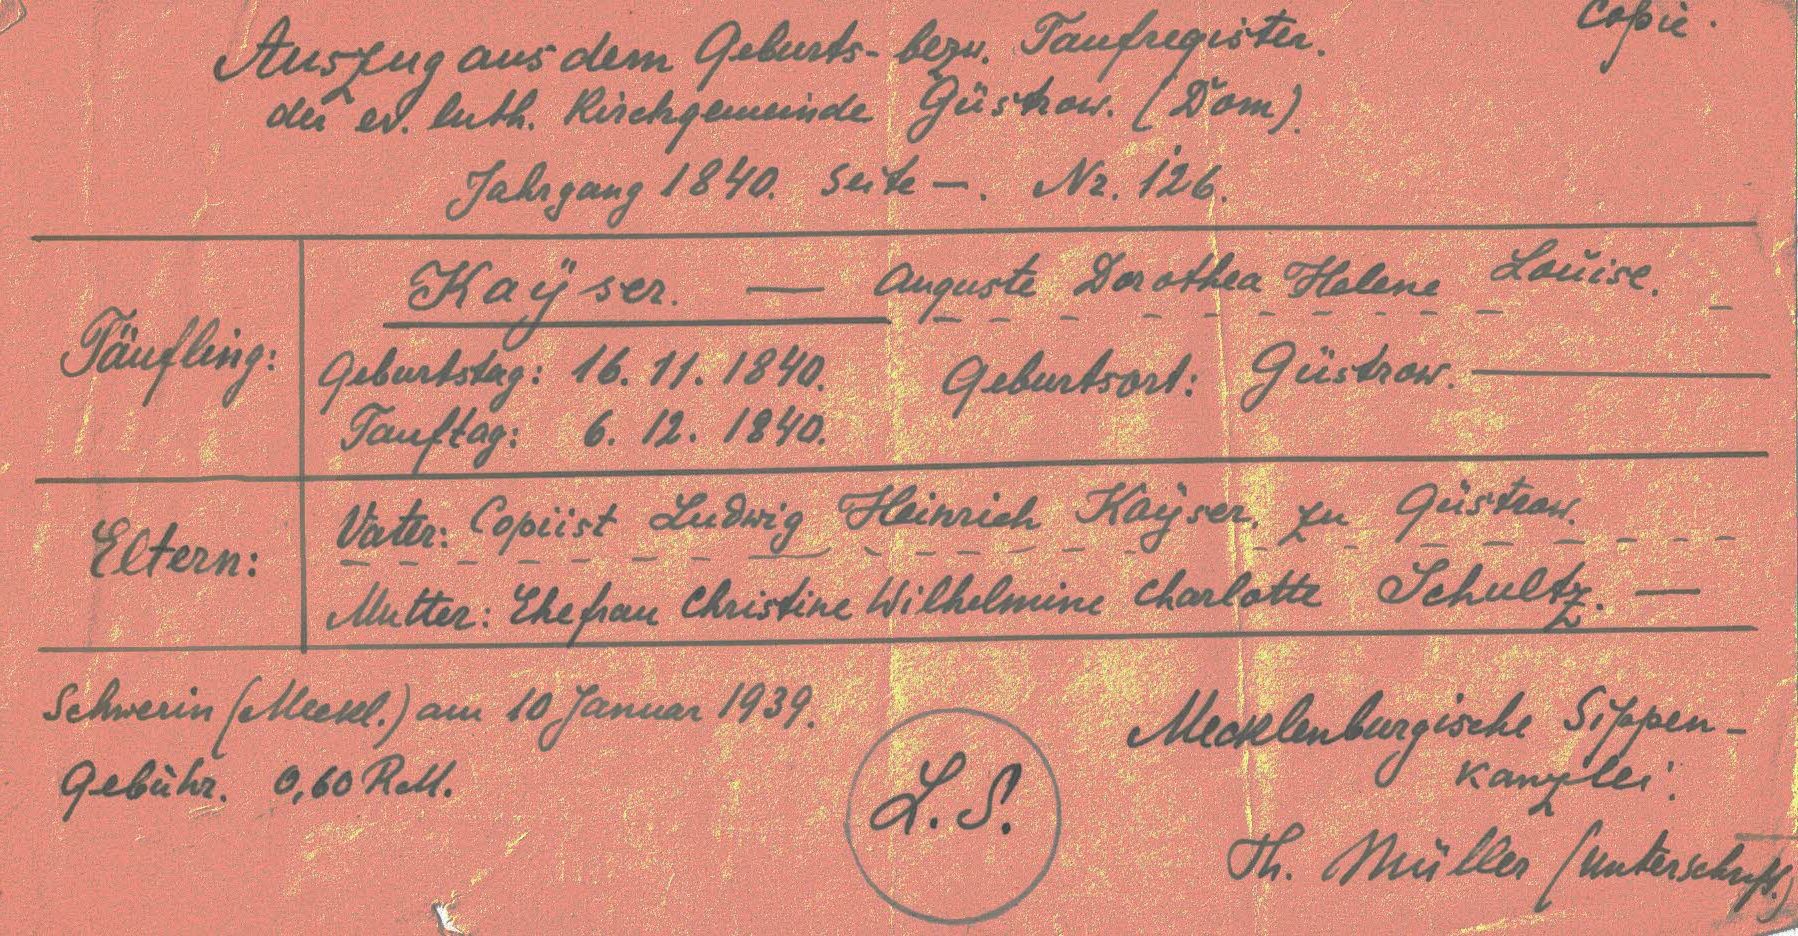 Copie.
Auszug aus dem Geburts- bezw. Taufregister.
der ev. luth. Kirchgemeinde Güstrow. (Dom).
Jahrgang 1840. Seite —. Nr. 126.
Kaÿser. — Auguste Dorothea Helene Louise.
Täufling:
Geburtstag: 16. 11. 1840. Geburtsort: Güstrow.
Tauftag: 6. 12. 1840.
Vater: Copiist Ludwig Heinrich Kaÿser. zu Güstrow.
Eltern:
Mutter: Ehefrau Christine Wilhelmine Charlotte Schultz. —
Schwerin (Meckl.) am 10 Januar 1939.
Mecklenburgische Sippen-
kanzlei.
Gebühr. 0,60 RM.
L. S.
Th. Müller (Unterschrift.)